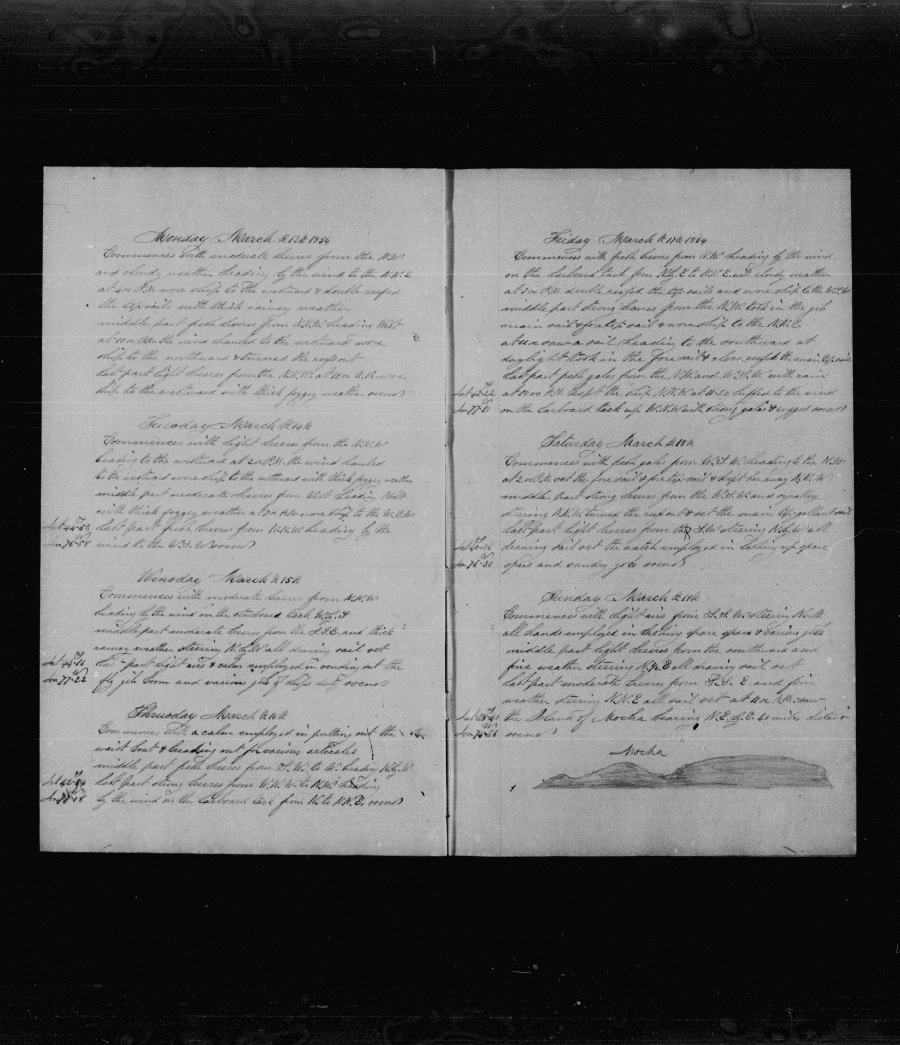 Monday March the 13th 1854
Commences with moderate breeses from the N.W
and cloudy weather heading by the wind to the
at 4 P.M. wore ship to the westward & double reefed
the topsails with thick rainey weather
middle part fresh breeses from N.N.W. heading West
at the wind hauled to the westward wore
ship to the northward & turned the reefs out
last part light breeses from the at wore
ship to the westward with thick foggey weather so ends
Tuesday March the 14th
Commences with light breeses from the N.N.W
heading to the westward at 2 P.M. the wind hauled
to the westward wore ship to the with thick foggey weather
middle part moderate breeses from West heading
with thick foggey weather at wore ship to the
Lat 44-53 last part fresh breeses from W.N.W. heading by the
Lon 76-54 wind to the so ends
Winsday March the 15th
Commences with moderate breeses from N.N.W
heading by the wind on the starboard tack
middle part moderate breeses from the and thick
rainey weather steering N.by W all drawing sail out
Lat 44- last part light airs & calm employed in sending out the
Lon 77-22 fly jib boom and various jobs of ships duty so ends
Thursday March the 16th
Commences with a calm employed in putting out the
waist boat & breaking out for various articales
middle part fresh breeses from S.W. to W. heading N.by W
Lat 42- last part strong breeses from W.N.W. to heading
Lon 77-18 by the wind on the larboard tack from N. to so ends
Friday March the 17th 1854
Commences with fresh breeses from N.W. heading by the wind
on the larboard tack from N.by E to with cloudy weather
at P.M. double reefed the top sails and wore ship to the
middle part strong breeses from the took in the jib
main sail & fore top sail & wore ship to the
at saw a sail heading to the southward at
daylight took in the fore sail & close reefed the main top sail
last part fresh gales from the and with rain
Lat at kept the ship at 11-30 luffed to the wind
Lon 77- on the larboard tack up with strong gales & rugged so ends
Saturday March the 18th
Commences with fresh gales from W.S.W. heading to the N.W
at 2 P.M. set the fore sail & fore top sail & kept her away
middle part strong breeses from the W.S.W. and squalley
steering turned the reefs out & set the main top gallant sail
last part light breeses from the S.W. steering N.by W. all
Lat drawing sail out the watch employed in lashing up spare
Lon 75-30 spars and sundry jobs so ends
Sunday March the 19th
Commences with light airs from S.S.W. steering
all hands employed in lashing spare spars & various jobs
middle part light breeses from the southward and
fine weather steering all drawing sail out
last part moderate breeses from S.S.E and fine
weather steering N.N.E all sail out at 11 A.M. saw
Lat 38- the Island of Mocha bearing N.E.by E 40 miles distant
Lon so ends
Mocha